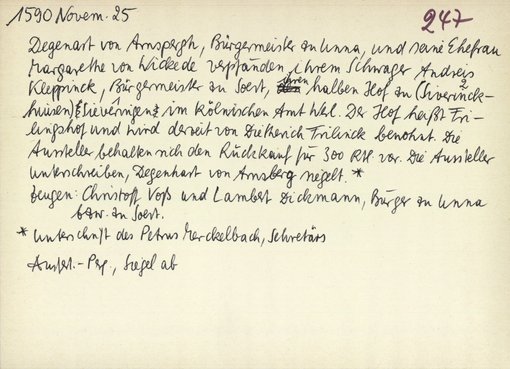 1590 Novem. 25
247
Degenart von Arnspergh, Bürgermeister zu Unna, und seine Ehefrau
Margarethe von Wickede verpfänden ihrem Schwager Andreis
Kleppinck, Bürgermeister zu Soest, ihren halben Hof zu (Siverinck-
husen) Sieveringen im kölnischen Amt Werl. Der Hof heißt Fri-
lingshof und wird derzeit von Dietherich Frilinck bewohnt. Die
Aussteller behalten sich den Rückkauf für 300 Rtl. vor. Die Aussteller
unterschreiben, Degenhart von Arnsberg siegelt. *
Zeugen: Christoff Voß und Lambert Dickmann, Bürger zu Unna
bzw. zu Soest.
* Unterschrift des Petrus Merckelbach, Sekretärs
Ausfert. - Perg., Siegel ab